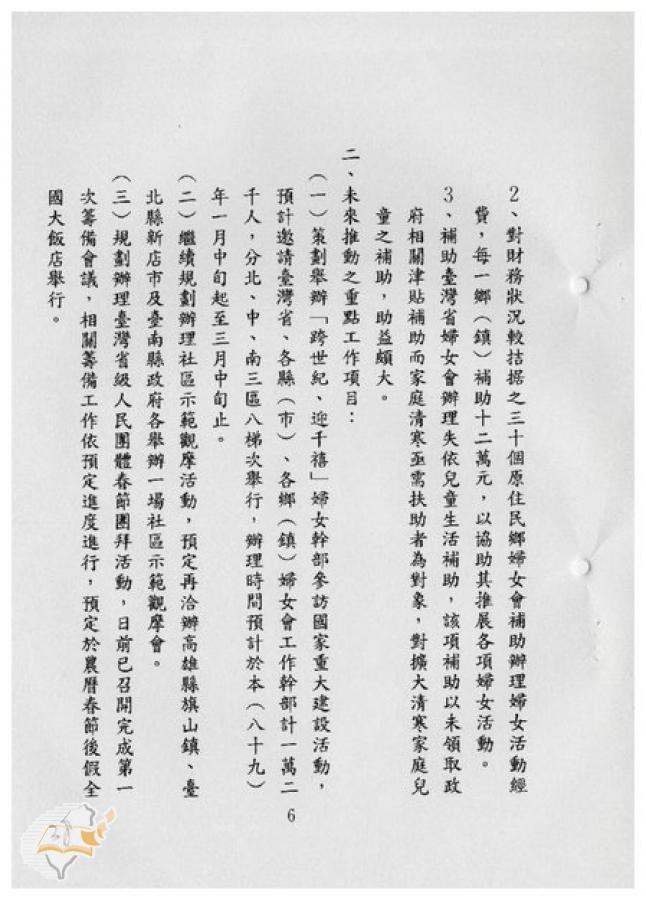 2、對財務狀況較拮据之三十個原住民鄉婦女會補助辦理婦女活動經
費，每一鄉（鎮）補助十二萬元，以協助其推展各項婦女活動。
3、補助臺灣省婦女會辦理失依兒童生活補助，該項補助以未領取政
府相關津貼補助而家庭清寒亟需扶助者為對象，對擴大清寒家庭兒
童之補助，助益頗大。
二、未來推動之重點工作項目：
（一）策劃舉辦「跨世紀、迎千禧」婦女幹部參訪國家重大建設活動，
預計邀請臺灣省、各縣（市）、各鄉（鎮）婦女會工作幹部計一萬二
千人，分北、中、南三區八梯次舉行，辦理時間預計於本（八十九）
年一月中旬起至三月中旬止。
（二）繼續規劃辦理社區示範觀摩活動，預定再洽辦高雄縣旗山鎮、臺
北縣新店市及臺南縣政府各舉辦一場社區示範觀摩會。
（三）規劃辦理臺灣省級人民團體春節團拜活動，日前已召開完成第一
次籌備會議，相關籌備工作依預定進度進行，預定於農曆春節後假全
國大飯店舉行。
6